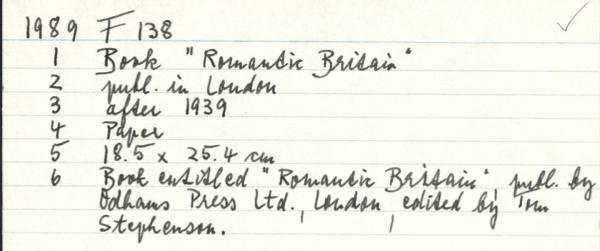 1989 F 138
1 Book "Romantic Britain"
2 publ. in London
3 after 1939
4 Paper
5 18.5 x 25.4 cm
6 Book entitled "Romantic Britain", publ. by
Odhams Press Ltd., London, edited by Tom
Stephenson.